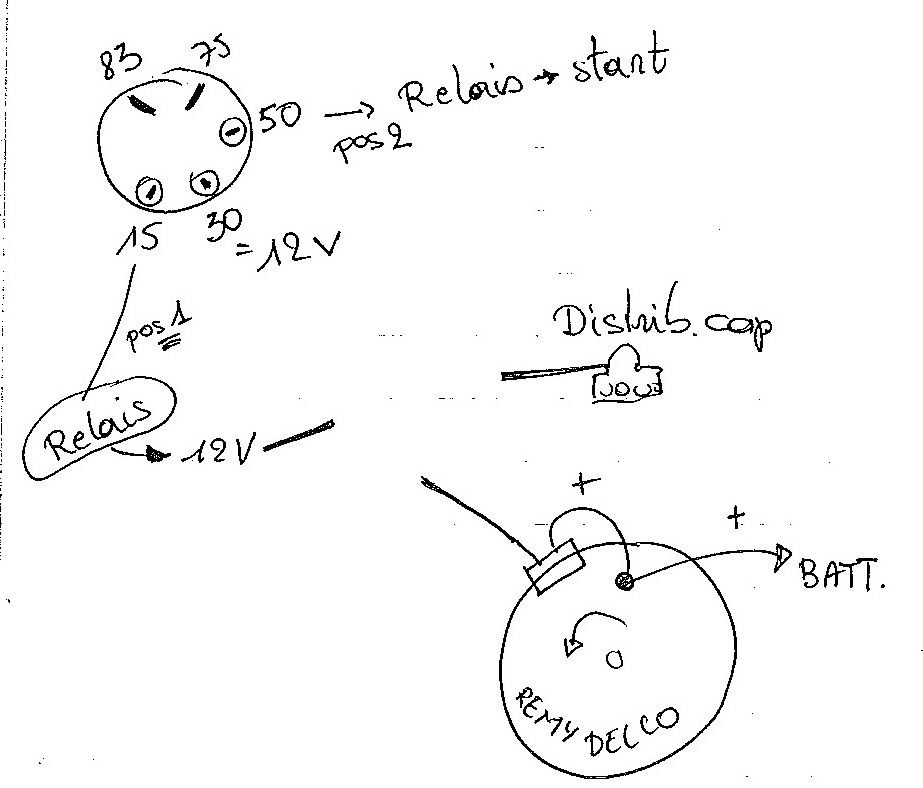 83 75
50 → Relais → start
pos 2
15
30
= 12V
pos 1
Distrib. cap
Relais
12V
+
+
BATT.
REMY DELCO